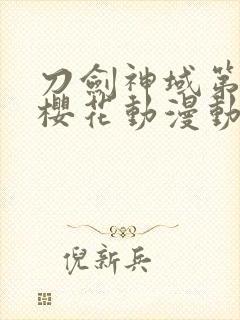 刀劍神域第
櫻花動漫動
倪新兵